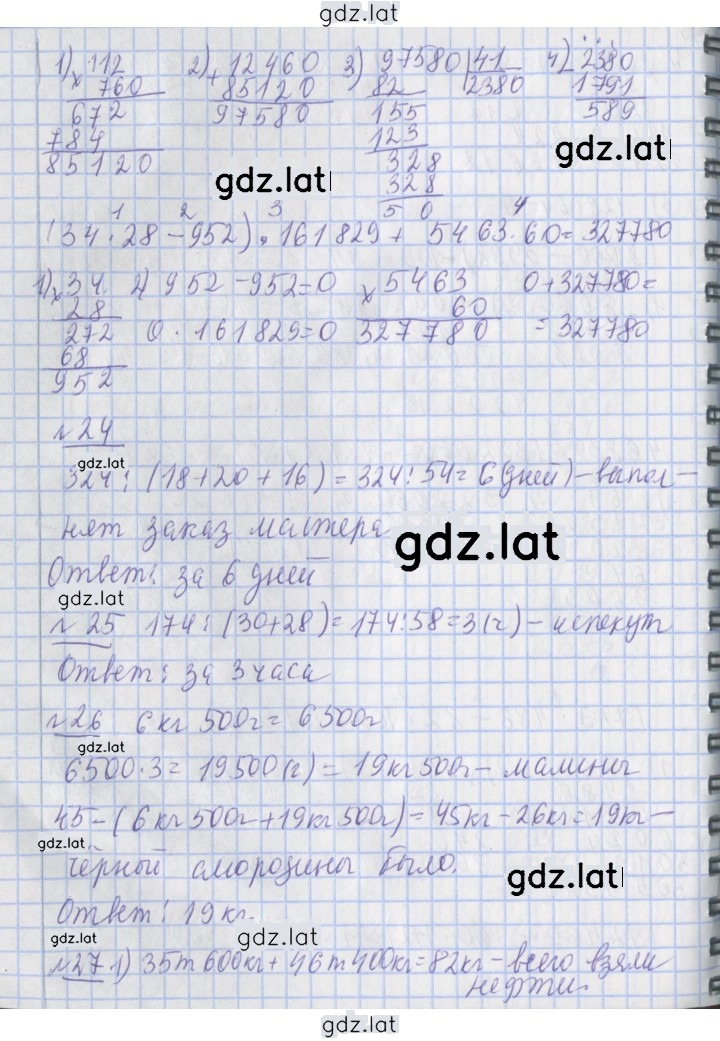 gdz.lat
1) ×112 2) +12460 3) 97580|41 4) 2380
760 85120 82 2380 1791
672 97580 155 589
784 123
85120 328
gdz.lat
328
gdz.lat
5 0 0
1 2 3 4
(34·28-952)·161829+5463·60=327780
1)×34 2) 952-952=0 ×5463 0+327780=
28 60
272 0·161829=0 327780 =327780
68
952
№24
gdz.lat
324:(18+20+16)=324:54=6(дней)-выпол-
нят заказ мастера
gdz.lat
Ответ: за 6 дней
gdz.lat
№25 174:(30+28)=174:58=3(ч)-испекут
Ответ: за 3 часа
№26 6кг 500г=6500г
gdz.lat
6500·3=19500(г)=19кг500г-малины
45-(6кг500г+19кг500г)=45кг-26кг=19кг-
gdz.lat
чёрной смородины было.
gdz.lat
Ответ: 19кг.
gdz.lat
gdz.lat
№27 1) 35т600кг+46т400кг=82кг-всего взяли
нефти
gdz.lat